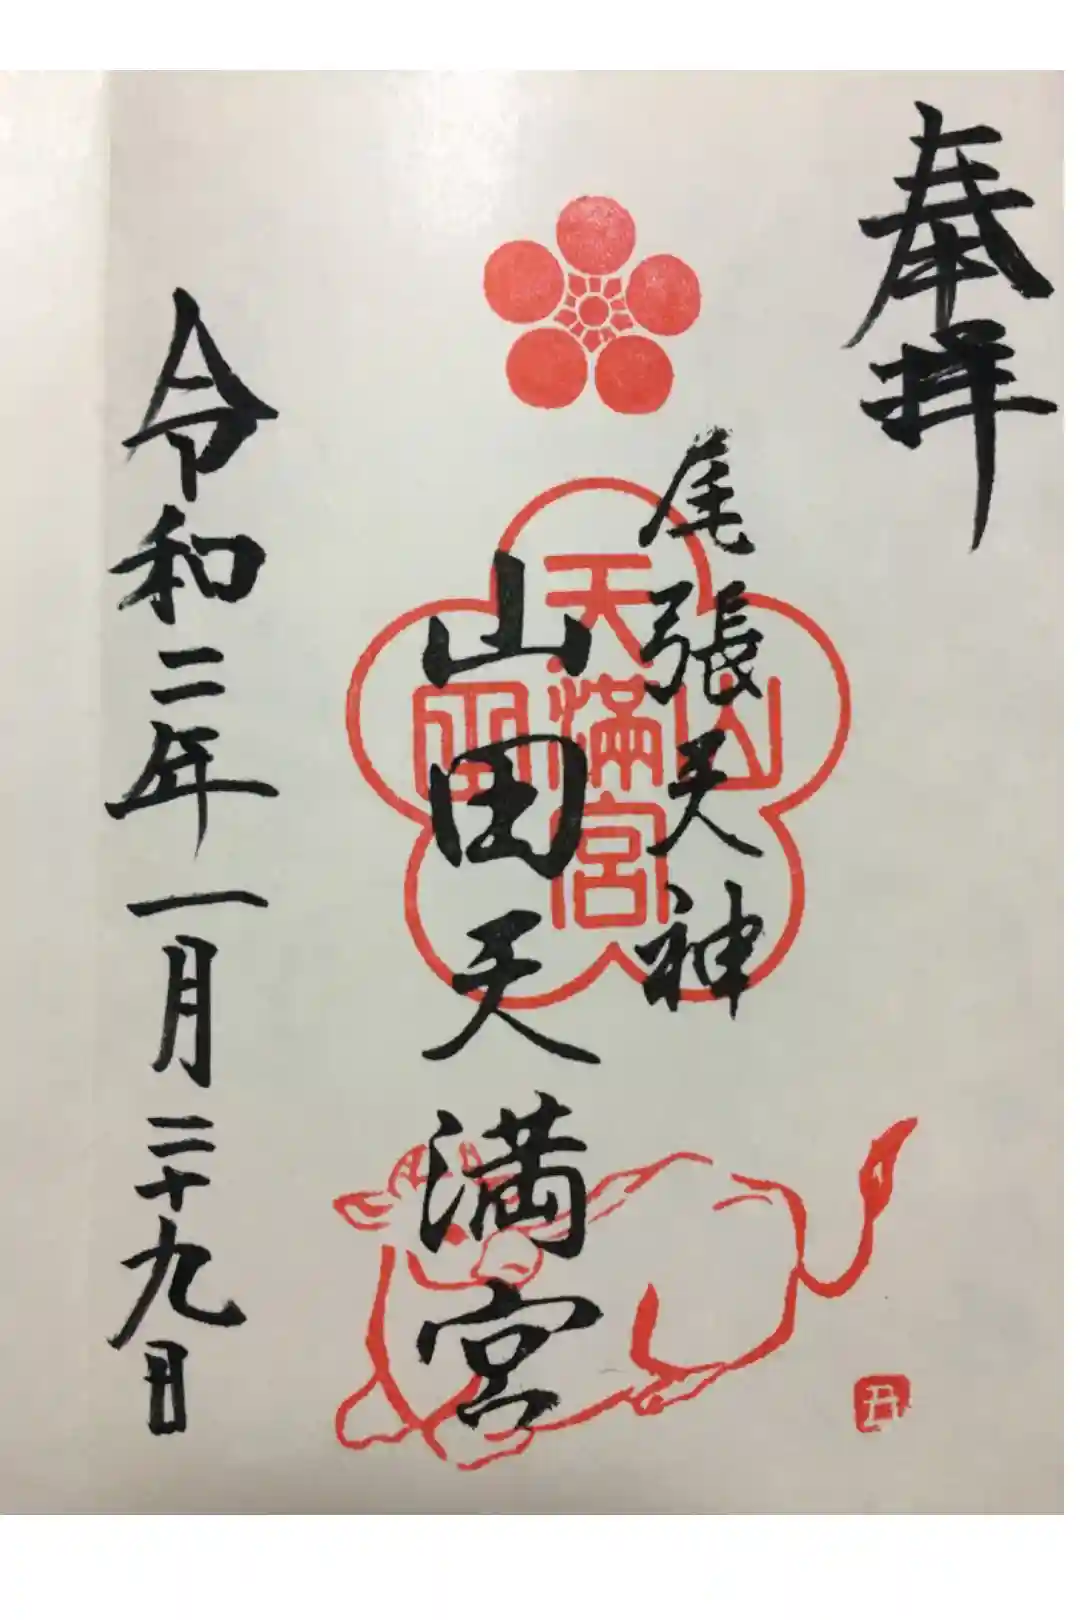 奉拝
尾張天神
山田天満宮
令和二年一月二十九日
天
山満田
宮
丑